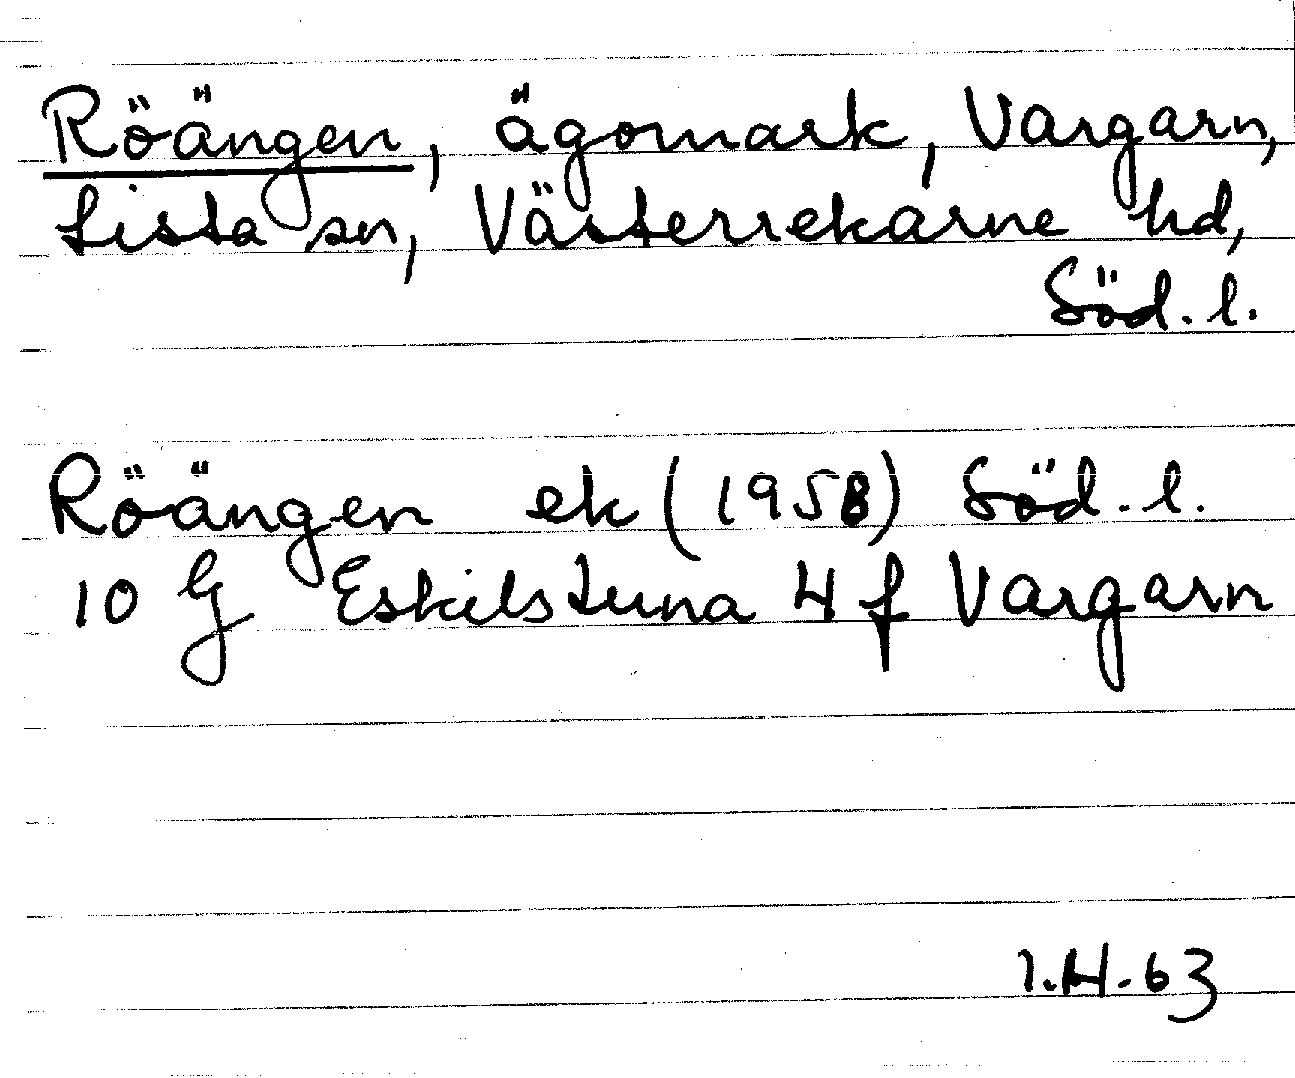 Röängen, ägomark, Vargarn,
Lista sn, Västerrekarne hd,
Söd. l.
Röängen ek (1958) Söd. l.
10 G Eskilstuna 4 f Vargarn
I.H.63